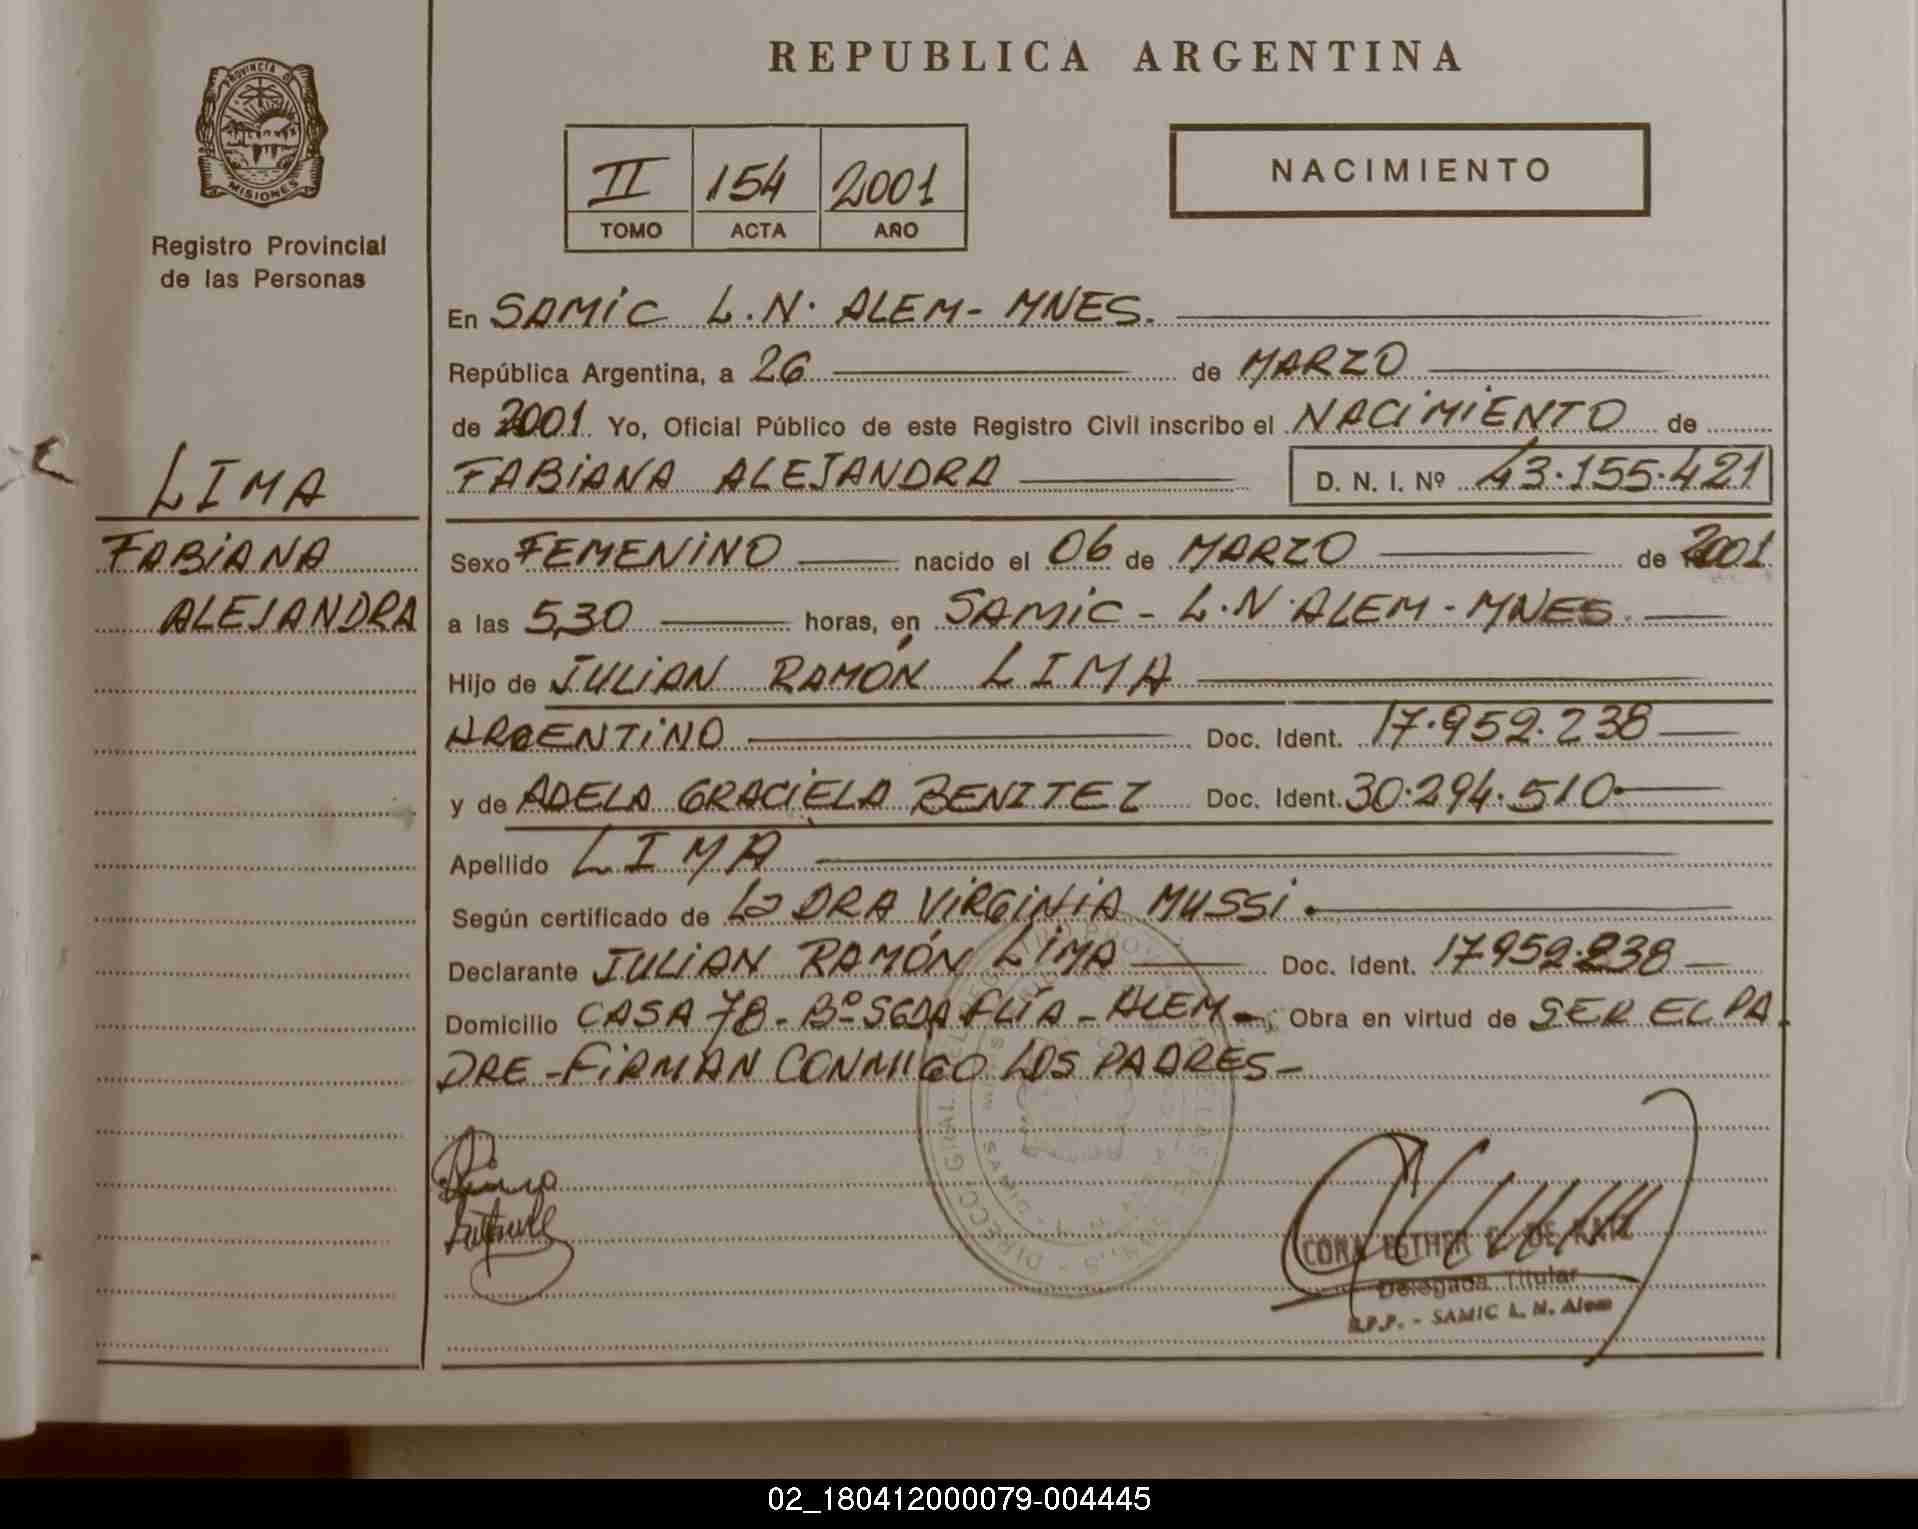 REPUBLICA ARGENTINA
PROVINCIA D
MISIONES
Registro Provincial
de las Personas
II 154 2001
TOMO ACTA AÑO
NACIMIENTO
En SAMIC L.N. ALEM - MNES.
República Argentina, a 26 de MARZO
de 2001 Yo, Oficial Público de este Registro Civil inscribo el NACIMIENTO de
FABIANA ALEJANDRA D. N. I. Nº 43.155.421
LIMA
FABIANA
ALEJANDRA
Sexo FEMENINO nacido el 06 de MARZO de 2001
a las 5,30 horas, en SAMIC - L.N. ALEM - MNES.
Hijo de JULIAN RAMÓN LIMA
ARGENTINO Doc. Ident. 17.952.238
y de ADELA GRACIELA BENITEZ Doc. Ident. 30.294.510
Apellido LIMA
Según certificado de La DRA VIRGINIA MUSSI.
Declarante JULIAN RAMÓN LIMA Doc. Ident. 17952.238
Domicilio CASA 78 - Bº SGDA FLIA - ALEM -, Obra en virtud de SER EL PA
DRE - FIRMAN CONMIGO LOS PADRES -
CORA ESTHER DE
Delegada Titular
R.P.P. - SAMIC L. N. Alem
02_180412000079-004445